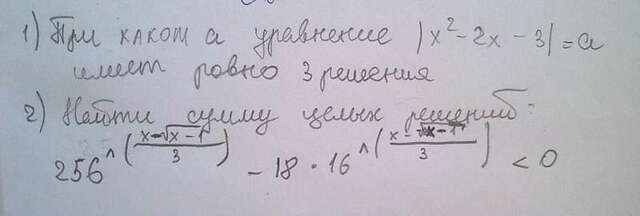 1) При каком a уравнение |x²-2x-3|=a
имеет ровно 3 решения
2) Найти сумму целых решений:
256^((x-√(x-1))/3) - 18 · 16^((x-√(x-1))/3) < 0